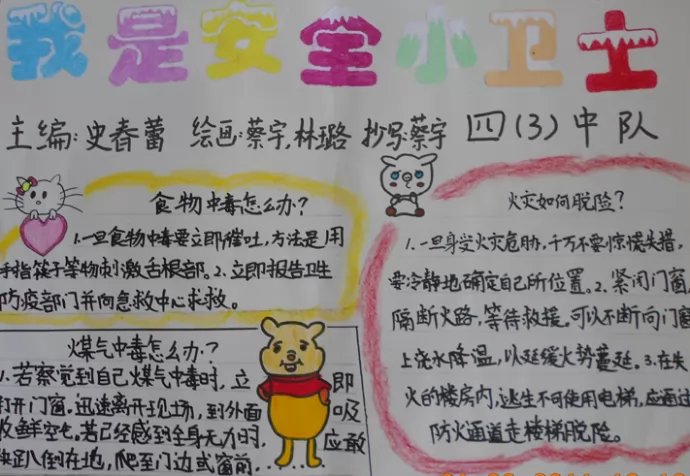 我是安全小卫士
主编:史春蕾 绘画:蔡宇,林璐 抄写:蔡宇 四(3)中队
食物中毒怎么办?
1.一旦食物中毒要立即催吐,方法是用
手指筷子等物刺激舌根部。2.立即报告卫生
防疫部门并向急救中心求救。
煤气中毒怎么办?
1.若察觉到自己煤气中毒时,立即
打开门窗,迅速离开现场,到外面吸
收鲜空气。若已经感到全身无力时,应敢
快趴倒在地,爬至门边或窗前......
火灾如何脱险?
1.一旦身受火灾危胁,千万不要惊慌失措,
要冷静地确定自己所位置。2.紧闭门窗,
隔断火路,等待救援。可以不断向门窗
上浇水降温,以延缓火势蔓延。3.在失
火的楼房内,逃生不可使用电梯,应通过
防火通道走楼梯脱险。